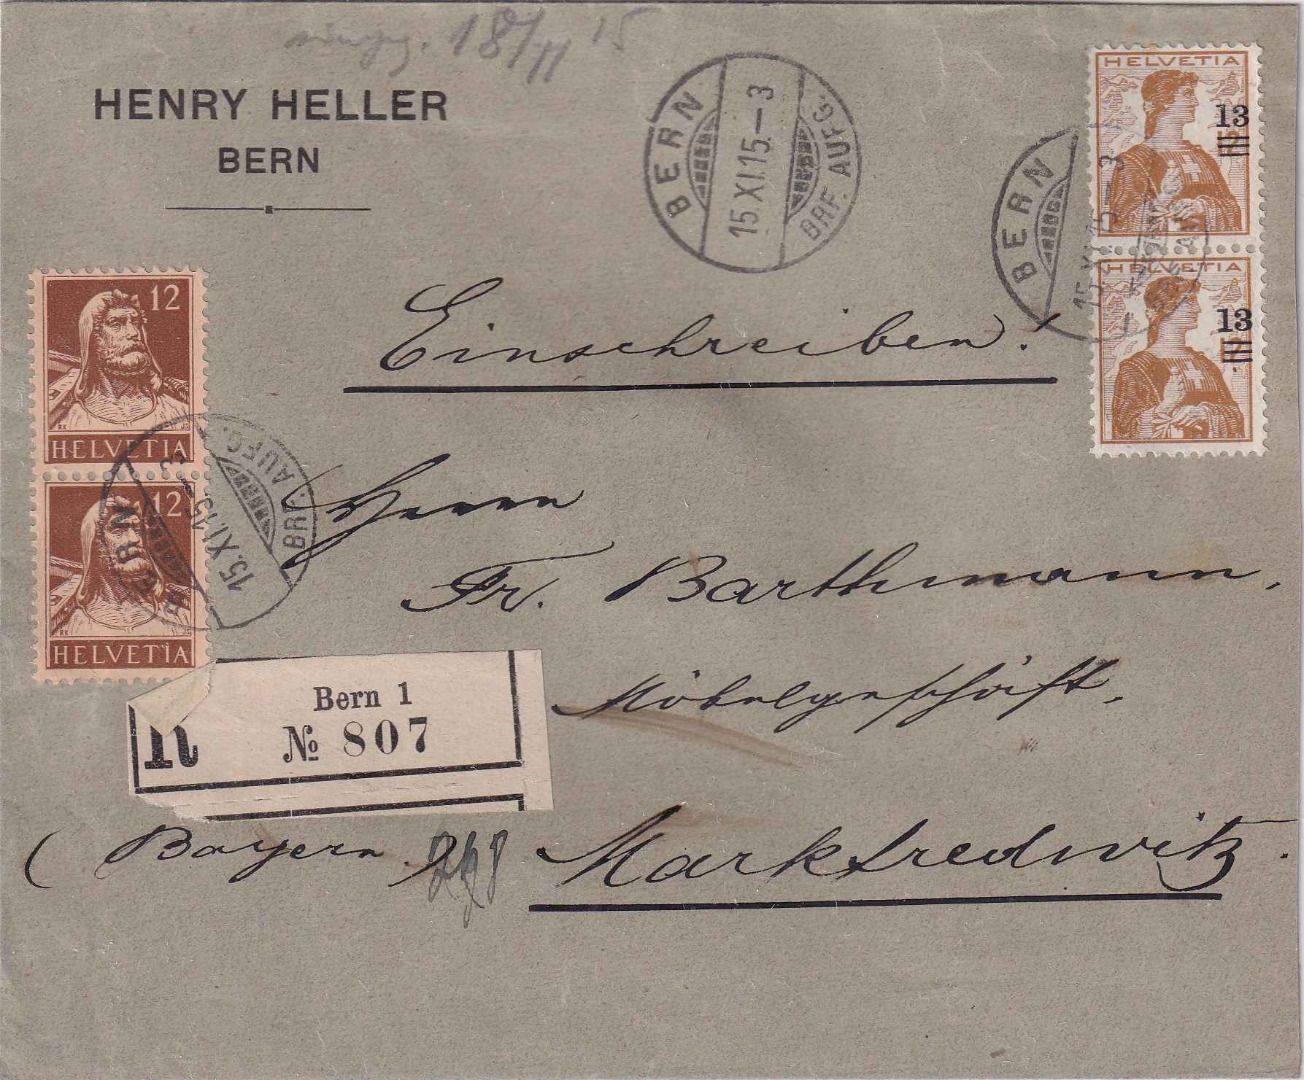 18/11 15
HENRY HELLER
BERN
BERN
15.XI.15.–3
BRF. AUFG.
HELVETIA
13
BERN
15.XI.15.–3
HELVETIA
13
Einschreiben!
12
HELVETIA
12
HELVETIA
BERN
15.XI.15.–3
BRF. AUFG.
Herrn
Fr. Barthmann,
Möbelgeschäft,
Bern 1
R № 807
(Bayern) Marktredwitz.